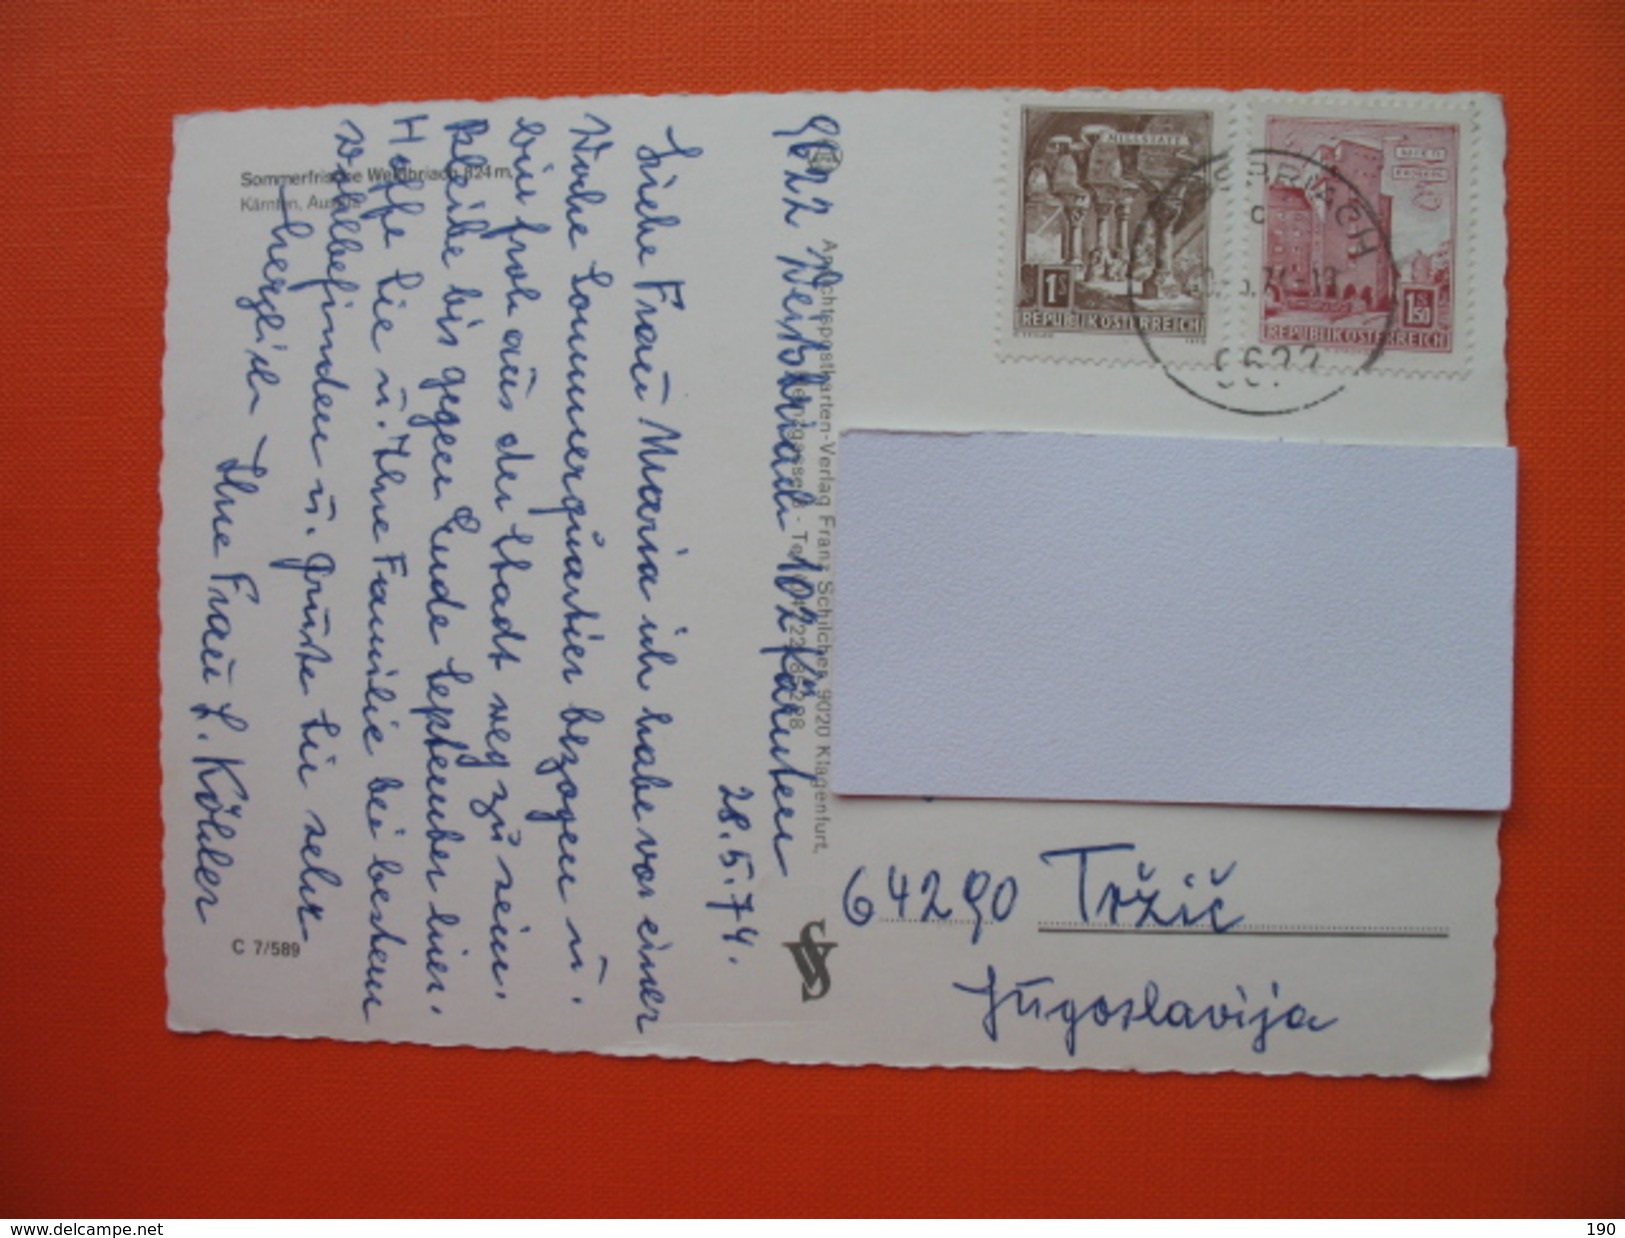 Sommerfrische Weißbriach 824 m,
Kärnten, Austria
9622 Weißbriach 102 Kärnten
28.5.74.
Liebe Frau Maria ich habe vor einer
Woche Sommerquartier bezogen u.
bin froh aus der Stadt weg zu sein.
Bleibe bis gegen Ende September hier.
Hoffe Sie u. Ihre Familie bei bestem
Wohlbefinden u. grüße Sie sehr
herzlich Ihre Frau L. Köhler
C 7/589
Ansichtspostkarten-Verlag Franz Schilcher, 9020 Klagenfurt,
MILLSTATT
1S
REPUBLIK ÖSTERREICH
1S50
REPUBLIK ÖSTERREICH
9622
64290 Tržič
Jugoslavija
delcampe.net
maryno
190